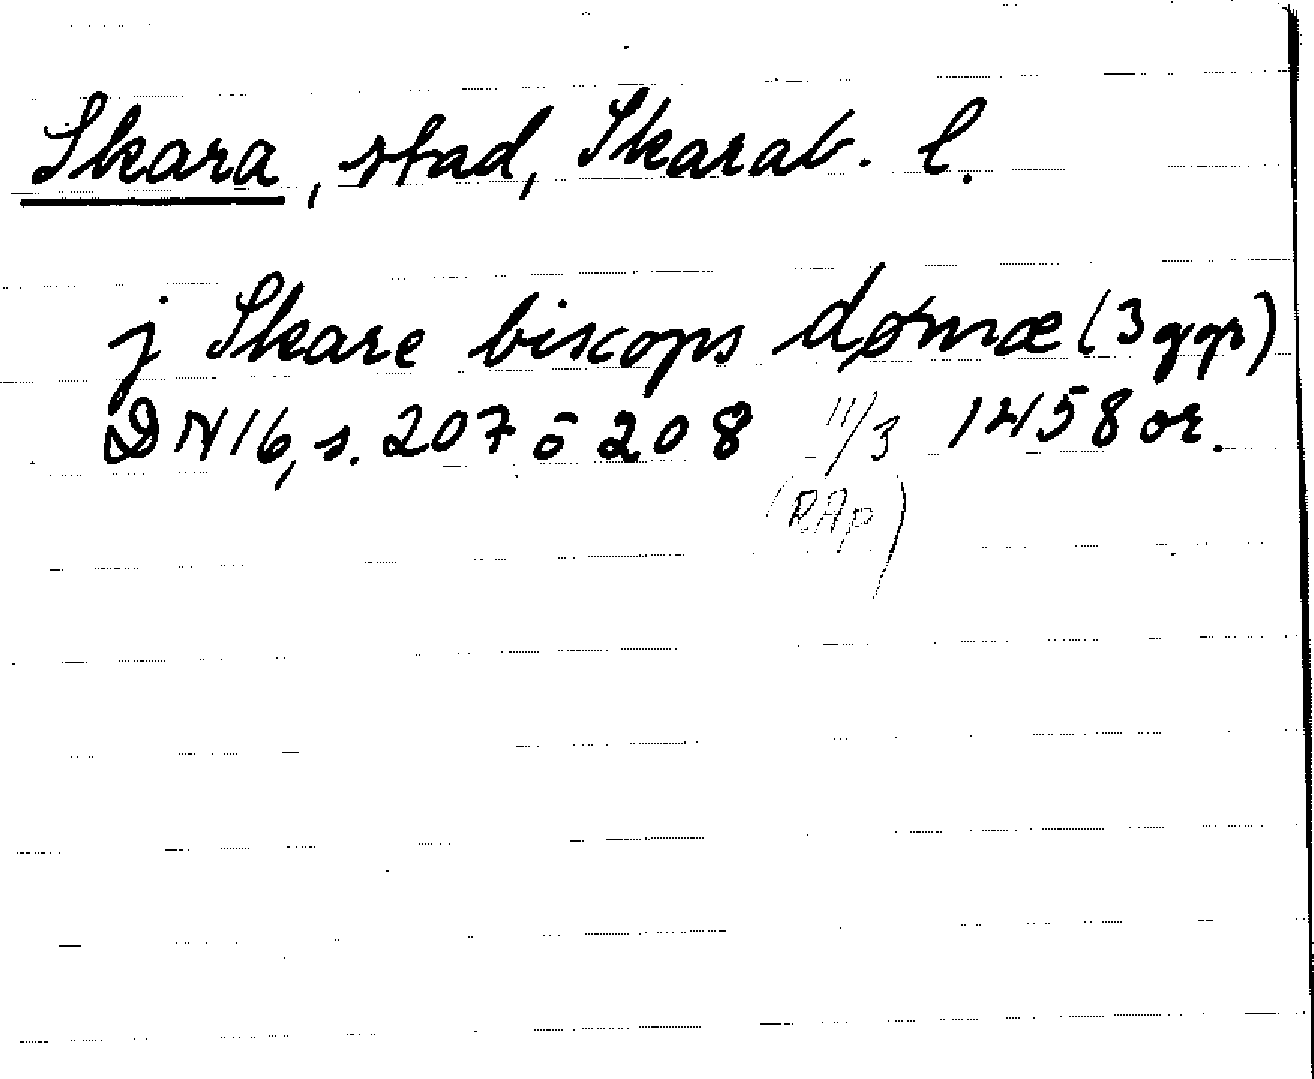 Skara, stad, Skarab. l.
j Skare biscops dømæ (3 ggr)
DN 16, s. 207 o 208 11/3 1458 or.
(RAp)